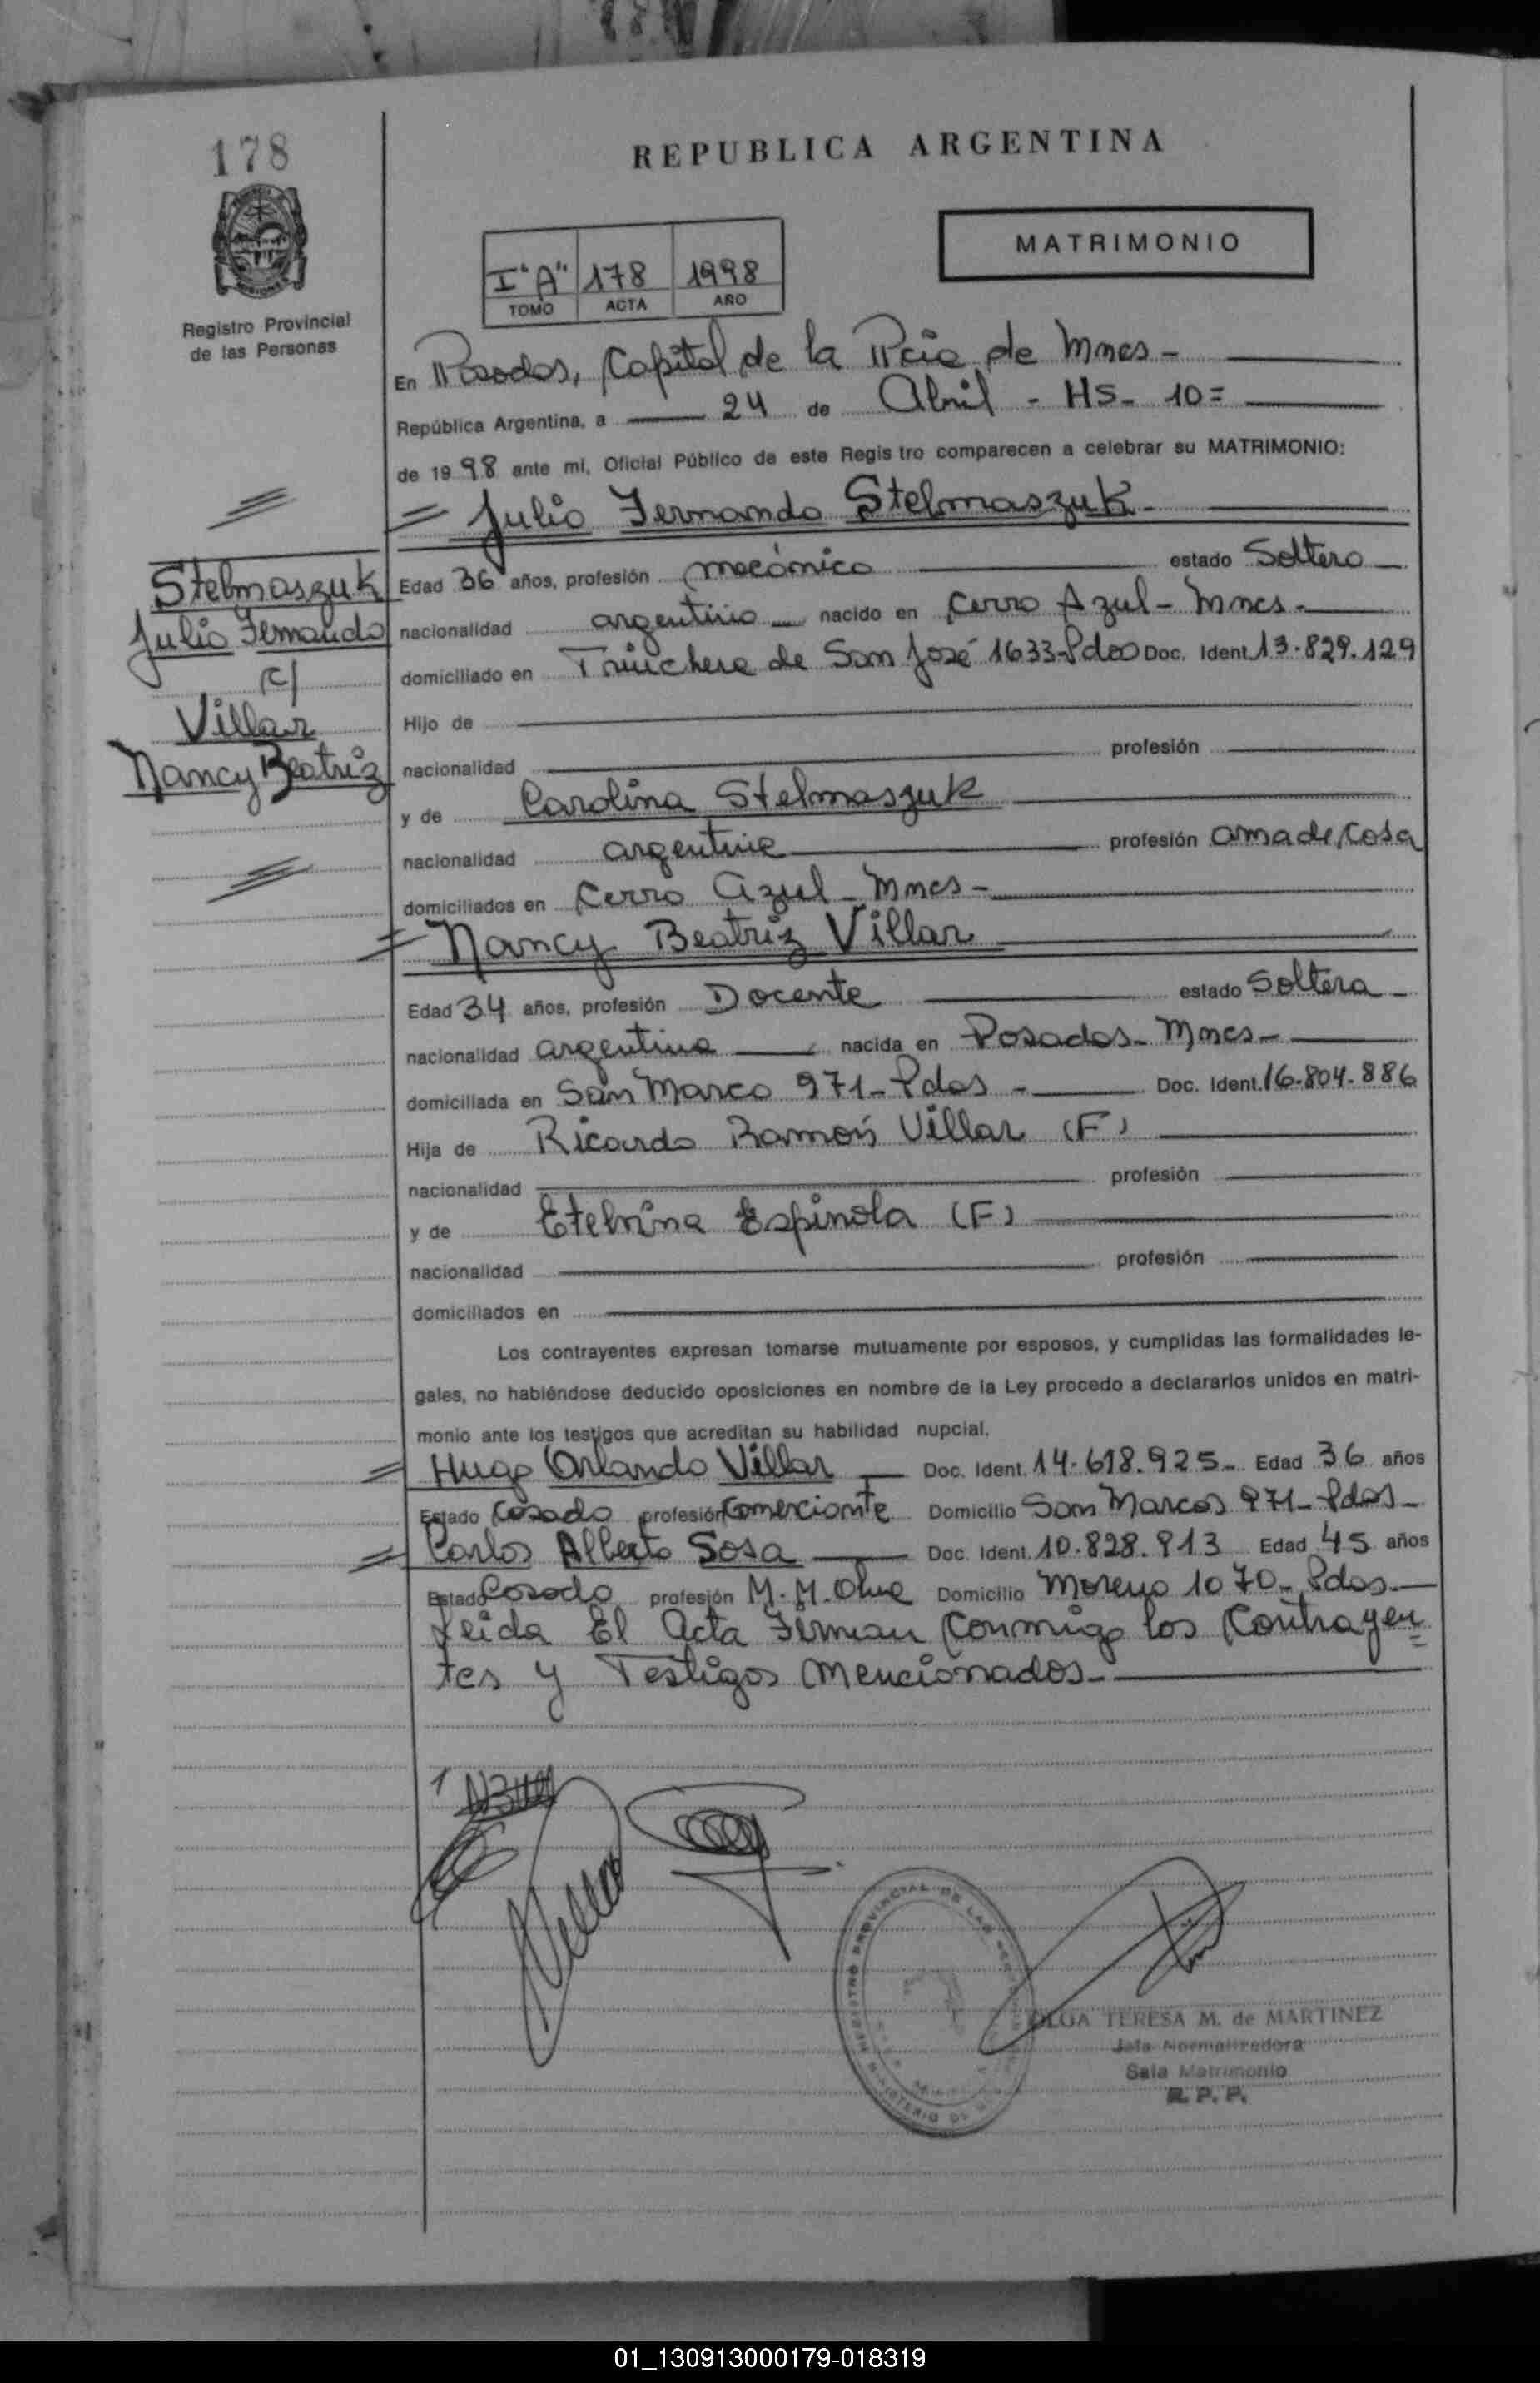 178
REPUBLICA ARGENTINA
MATRIMONIO
I "A" 178 1998
TOMO ACTA AÑO
Registro Provincial
de las Personas
En Posadas, Capital de la Pcia de Mnes -
República Argentina, a 24 de Abril - Hs - 10 =
de 1998 ante mi, Oficial Público de este Regis tro comparecen a celebrar su MATRIMONIO:
= Julio Fernando Stelmaszuk -
Stelmaszuk
Julio Fernando
c/
Villar
Nancy Beatriz
Edad 36 años, profesión mecánico estado Soltero
nacionalidad argentino nacido en Cerro Azul - Mnes -
domiciliado en Trinchera de San José 1633 - Pdas Doc. Ident. 13.829.129
Hijo de
nacionalidad profesión
y de Carolina Stelmaszuk
nacionalidad argentina profesión ama de Casa
domiciliados en Cerro Azul - Mnes -
= Nancy Beatriz Villar
Edad 34 años, profesión Docente estado Soltera -
nacionalidad argentina nacida en Posadas - Mnes -
domiciliada en San Marco 971 - Pdas - Doc. Ident. 16.804.886
Hija de Ricardo Ramón Villar (F)
nacionalidad profesión
y de Etelvina Espinola (F)
nacionalidad profesión
domiciliados en
Los contrayentes expresan tomarse mutuamente por esposos, y cumplidas las formalidades le-
gales, no habiéndose deducido oposiciones en nombre de la Ley procedo a declararlos unidos en matri-
monio ante los testigos que acreditan su habilidad nupcial.
= Hugo Orlando Villar Doc. Ident. 14.618.925 - Edad 36 años
Estado Casado profesión Comerciante Domicilio San Marcos 971 - Pdas -
= Carlos Alberto Sosa Doc. Ident. 10.828.913 Edad 45 años
Estado Casado profesión M. M. Domicilio Moreno 1070 - Pdas -
leida El Acta Firman Conmigo los Contrayen
tes y Testigos mencionados -
Villar
REGISTRO PROVINCIAL DE LAS
MINISTERIO DE
OLGA TERESA M. de MARTINEZ
Jefa Normalizadora
Sala Matrimonio
R. P. P.
01_130913000179-018319